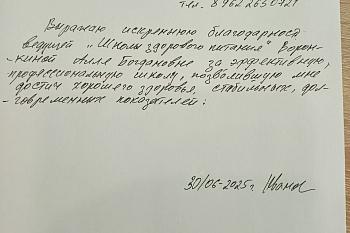 тел. 8 962 265 0727
Выражаю искреннюю благодарност
ведущей "Школы здорового питания" Ворон-
-киной Алле Богдановне за эффективную,
профессиональную школу, позволившую мне
достич хорошего здоровья, стабильных, дол-
-говременных показателей.
30/06-2025 г